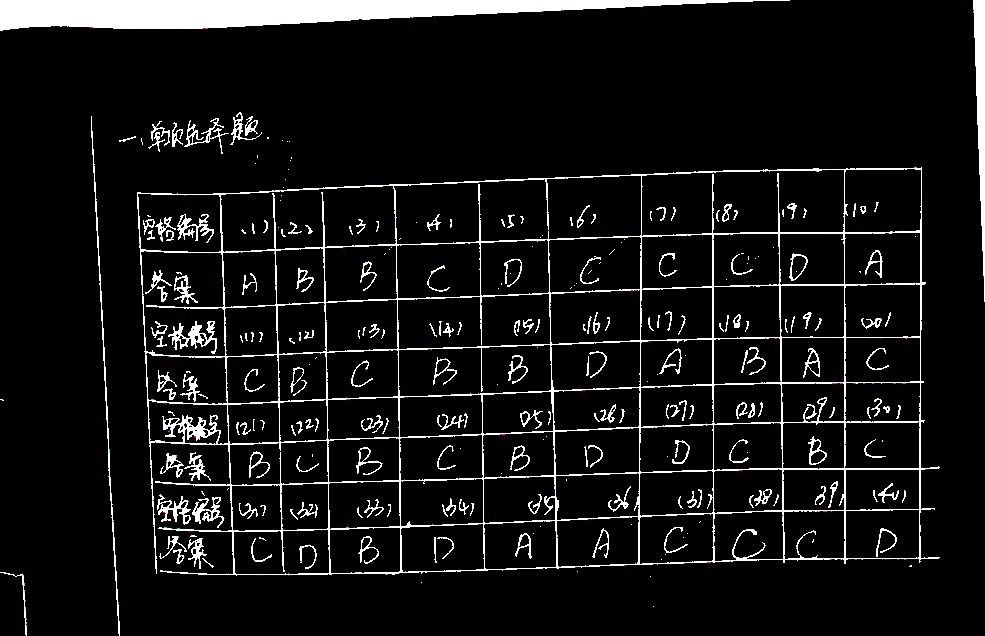 一、单项选择题.
空格编号 (1) (2) (3) (4) (5) (6) (7) (8) (9) (10)
答案 A B B C D C C C D A
空格编号 (11) (12) (13) (14) (15) (16) (17) (18) (19) (20)
答案 C B C B B D A B A C
空格编号 (21) (22) (23) (24) (25) (26) (27) (28) (29) (30)
答案 B C B C B D D C B C
空格编号 (31) (32) (33) (34) (35) (36) (37) (38) 39) (40)
答案 C D B D A A C C C D